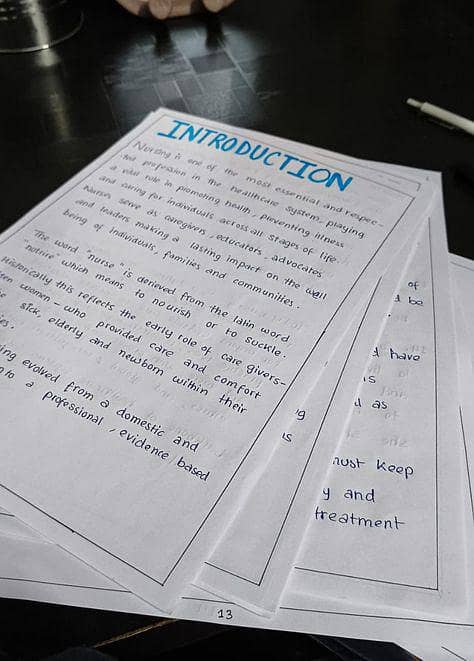 INTRODUCTION
Nursing is one of the most essential and respec-
ted profession in the healthcare system, playing
a vital role in promoting health, preventing illness
and caring for individuals across all stages of life.
Nurses serve as caregivers, educators, advocates
and leaders making a lasting impact on the well
being of individuals, families and communities.
The word "nurse" is derieved from the latin word
"nutrire" which means to nourish or to suckle.
Historically this reflects the early role of care givers-
women - who provided care and comfort
sick, elderly and newborn within their
evolved from a domestic and
to a professional, evidence based
of
be
have
is
as
must keep
y and
treatment
ig
is
13